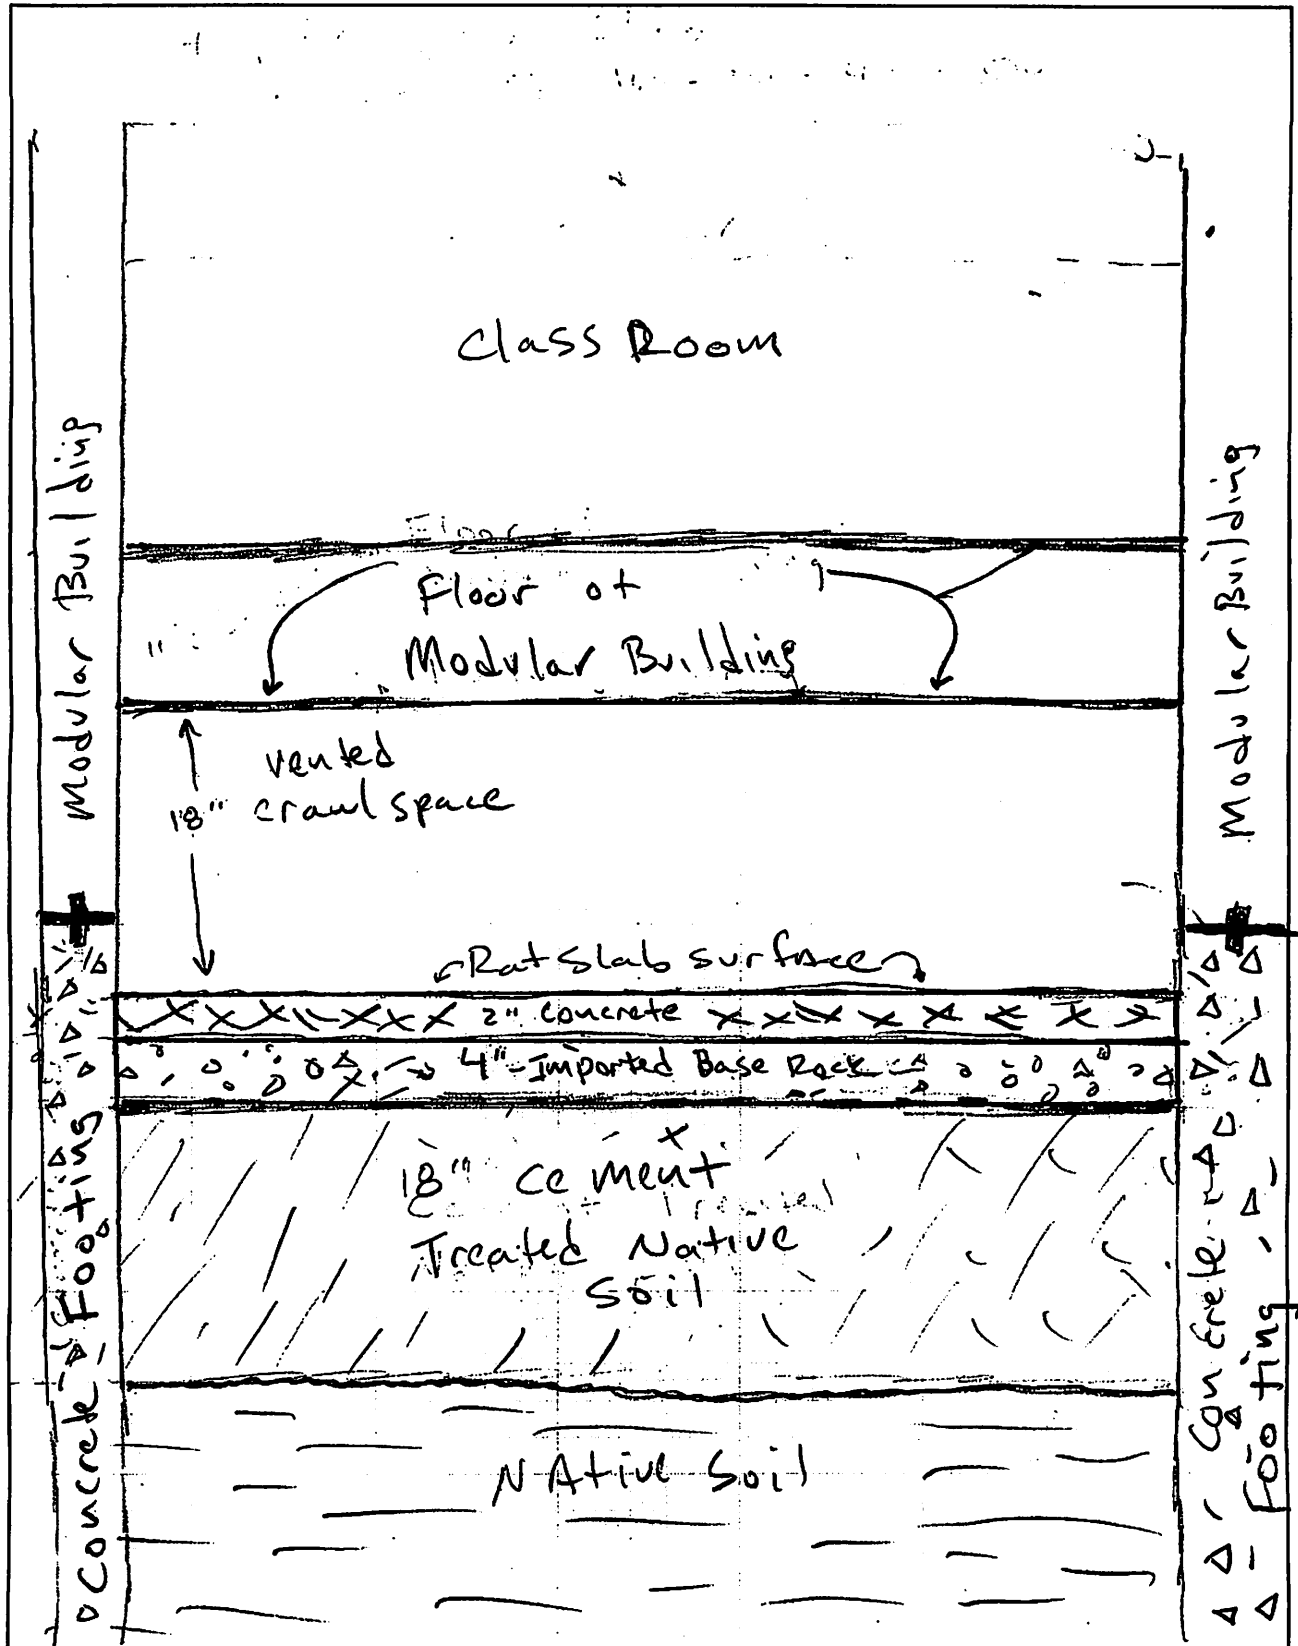 Class Room
Modular Building
Modular Building
Floor
Floor of
Modular Building
vented
18" crawl space
Rat Slab surface
2" concrete
4" Imported Base Rock
18" cement
Treated Native
Soil
Native Soil
Concrete Footing
Concrete
Footing